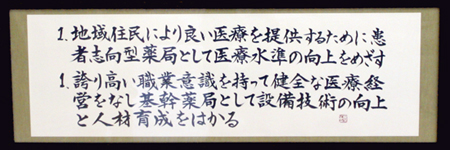 1.地域住民により良い医療を提供するために患
者志向型薬局として医療水準の向上をめざす
1.誇り高い職業意識を持って健全な医療経
営をなし基幹薬局として設備技術の向上
と人材育成をはかる